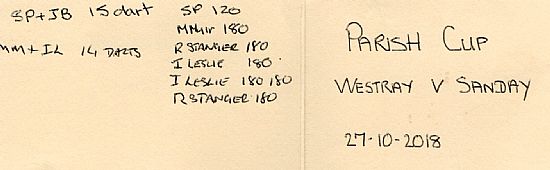 SP+JB 15 dart
MM+IL 14 DARTS
SP 120
MMuir 180
R STANGER 180
I LESLIE 180
I LESLIE 180 180
R STANGER 180
PARISH CUP
WESTRAY V SANDAY
27-10-2018